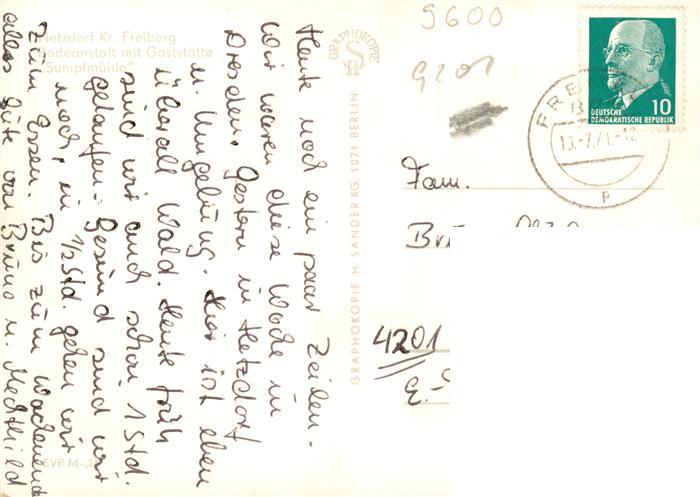 Hetzdorf Kr. Freiberg
Badeanstalt mit Gaststätte
„Sumpfmühle"
Heute noch ein paar Zeilen.
Wir waren diese Woche in
Dresden. Gestern in Hetzdorf
u. Umgebung. Hier ist eben
überall Wald. Heute früh
sind wir auch schon 1 Std.
gelaufen. Gesund sind wir
noch, in 1/2 Std. gehen wir
zum Essen. Bis zum Wochenende
alles Gute von Bruno u. Mechthild
EVP M
GRAPHOKOPIE
GRAPHOKOPIE H. SANDER KG. 1071 BERLIN
9600
9201
DEUTSCHE
DEMOKRATISCHE REPUBLIK
10
FRE
13.-7.71.-12
P
Fam.
4201